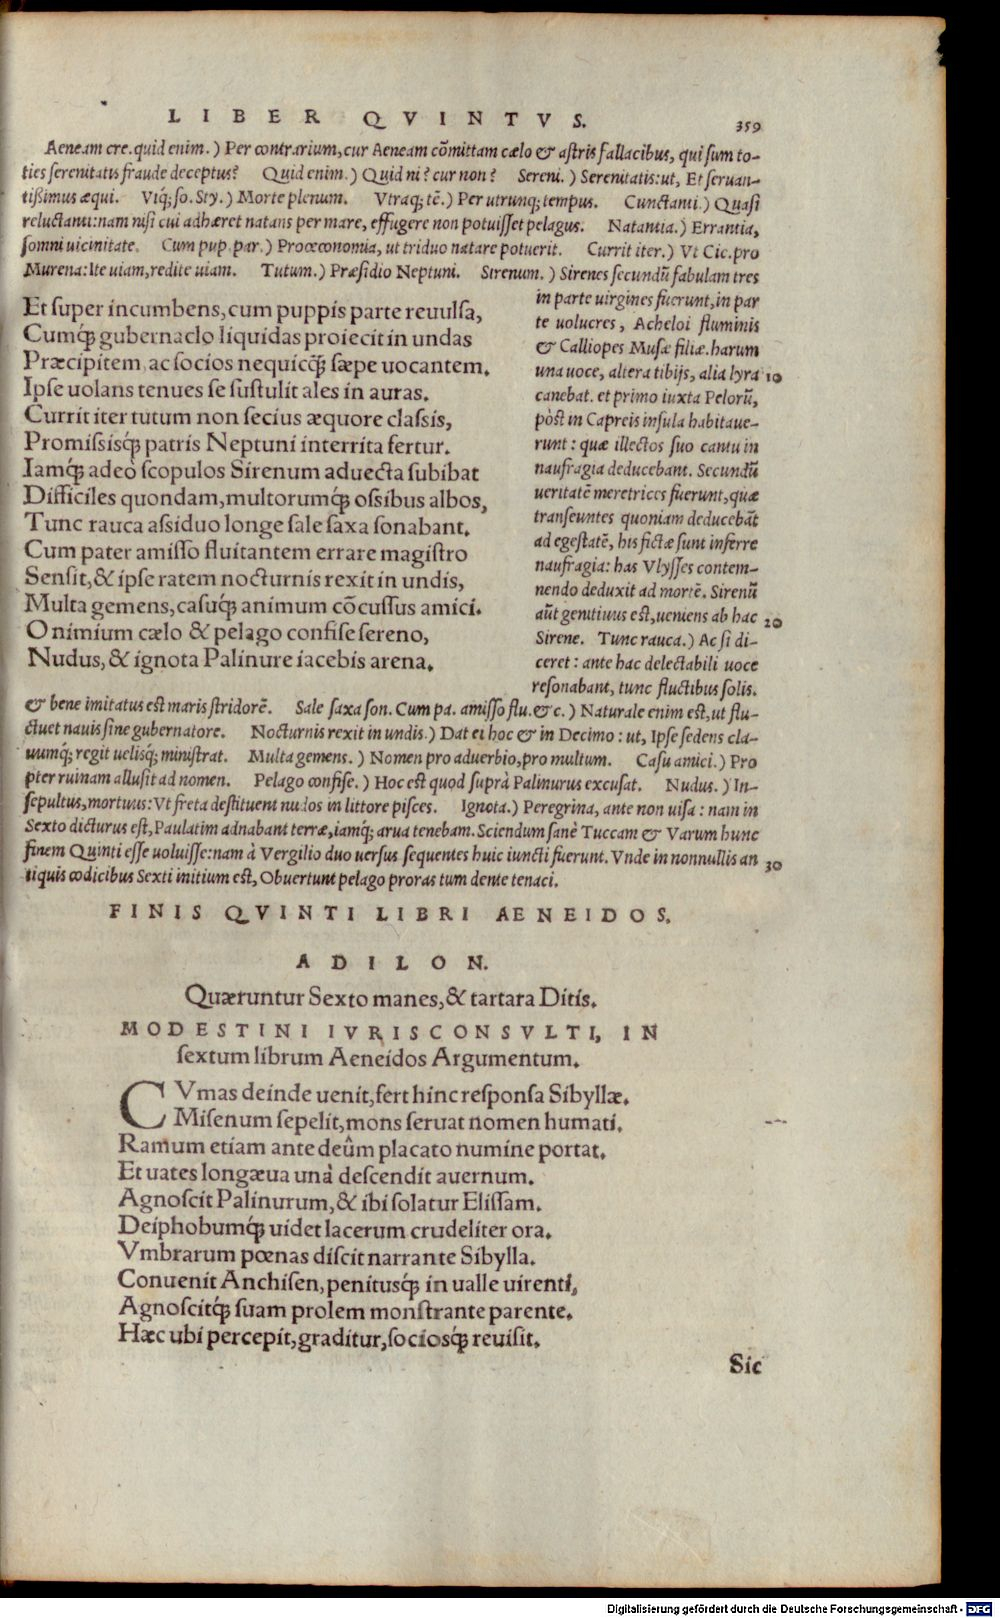 LIBER QVINTVS. 359
Aeneam cre. quid enim.) Per contrarium, cur Aeneam cõmittam cælo & astris fallacibus, qui sum to-
ties serenitatis fraude deceptus? Quid enim.) Quid ni? cur non? Sereni.) Serenitatis: ut, Et seruan-
tißimus æqui. Viq́; so. Sty.) Morte plenum. Vtraq; tẽ.) Per utrunq; tempus. Cunctanti.) Quasi
reluctanti: nam nisi cui adhæret natans per mare, effugere non potuisset pelagus. Natantia.) Errantia,
somni uicinitate. Cum pup. par.) Proœconomia, ut triduo natare potuerit. Currit iter.) Vt Cic. pro
Murena: Ite uiam, redite uiam. Tutum.) Præsidio Neptuni. Sirenum.) Sirenes secundũ fabulam tres
Et super incumbens, cum puppis parte reuulsa,
Cumq́; gubernaclo liquidas proiecit in undas
Præcipitem, ac socios nequicq̃; sæpe uocantem.
Ipse uolans tenues se sustulit ales in auras.
Currit iter tutum non secius æquore classis,
Promissisq́; patris Neptuni interrita fertur.
Iamq́; adeò scopulos Sirenum aduecta subibat
Difficiles quondam, multorumq́; ossibus albos,
Tunc rauca assiduo longe sale saxa sonabant.
Cum pater amisso fluitantem errare magistro
Sensit, & ipse ratem nocturnis rexit in undis,
Multa gemens, casuq́; animum cõcussus amici.
O nimium cælo & pelago confise sereno,
Nudus, & ignota Palinure iacebis arena.
in parte uirgines fuerunt, in par
te uolucres, Acheloi fluminis
& Calliopes Musæ filiæ. harum
una uoce, altera tibijs, alia lyra 10
canebat. et primo iuxta Pelorũ,
pòst in Capreis insula habitaue-
runt: quæ illectos suo cantu in
naufragia deducebant. Secundũ
ueritatẽ meretrices fuerunt, quæ
transeuntes quoniam deducebãt
ad egestatẽ, his fictæ sunt inferre
naufragia: has Vlysses contem-
nendo deduxit ad mortẽ. Sirenũ
aũt genitiuus est, ueniens ab hac 20
Sirene. Tunc rauca.) Ac si di-
ceret: ante hac delectabili uoce
resonabant, tunc fluctibus solis.
& bene imitatus est maris stridorẽ. Sale saxa son. Cum pa. amisso flu. &c.) Naturale enim est, ut flu-
ctuet nauis sine gubernatore. Nocturnis rexit in undis.) Dat ei hoc & in Decimo: ut, Ipse sedens cla-
uumq́; regit uelisq́; ministrat. Multa gemens.) Nomen pro aduerbio, pro multum. Casu amici.) Pro
pter ruinam allusit ad nomen. Pelago confise.) Hoc est quod suprà Palinurus excusat. Nudus.) In-
sepultus, mortuus: Vt freta destituent nudos in littore pisces. Ignota.) Peregrina, ante non uisa: nam in
Sexto dicturus est, Paulatim adnabant terræ, iamq́; arua tenebam. Sciendum sanè Tuccam & Varum hunc
finem Quinti esse uoluisse: nam à Vergilio duo uersus sequentes huic iuncti fuerunt. Vnde in nonnullis an 30
tiquis codicibus Sexti initium est, Obuertunt pelago proras tum dente tenaci.
FINIS QVINTI LIBRI AENEIDOS.
ADILON.
Quæruntur Sexto manes, & tartara Ditis.
MODESTINI IVRISCONSVLTI, IN
sextum librum Aeneidos Argumentum.
CVmas deinde uenit, fert hinc responsa Sibyllæ.
Misenum sepelit, mons seruat nomen humati.
Ramum etiam ante deûm placato numine portat.
Et uates longæua unà descendit auernum.
Agnoscit Palinurum, & ibi solatur Elissam.
Deiphobumq́; uidet lacerum crudeliter ora.
Vmbrarum pœnas discit narrante Sibylla.
Conuenit Anchisen, penitusq́; in ualle uirenti,
Agnoscitq́; suam prolem monstrante parente.
Hæc ubi percepit, graditur, sociosq́; reuisit.
Sic
Digitalisierung gefördert durch die Deutsche Forschungsgemeinschaft - DFG